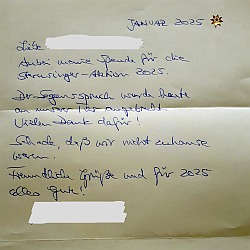 JANUAR 2025
Liebe
Anbei meine Spende für die
Sternsinger-Aktion 2025.
Der Segensspruch wurde heute
an unserer Türe angebracht.
Vielen Dank dafür!
Schade, daß wir nicht zuhause
waren.
Freundliche Grüße und für 2025
alles Gute!